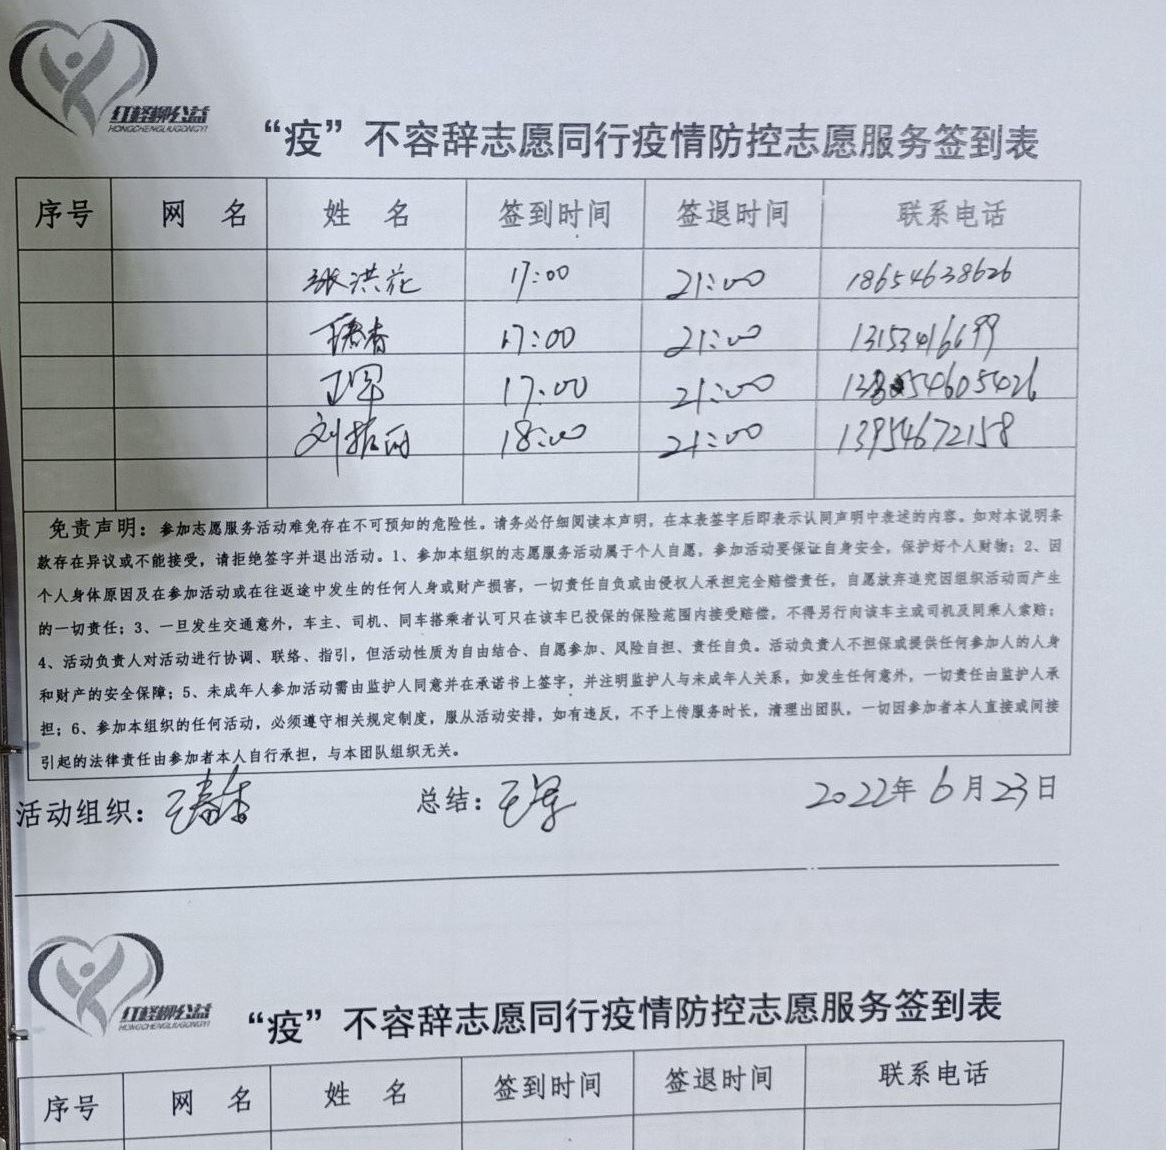 红柽柳公益
HONGCHENGLIUGONGYI
“疫”不容辞志愿同行疫情防控志愿服务签到表
序号 网 名 姓 名 签到时间 签退时间 联系电话
张洪花 17:00 21:00 18654638626
17:00 21:00 13153416699
王军 17:00 21:00
刘 18:00 21:00 13954672158
免责声明：参加志愿服务活动难免存在不可预知的危险性。请务必仔细阅读本声明，在本表签字后即表示认同声明中表述的内容。如对本说明条
款存在异议或不能接受，请拒绝签字并退出活动。1、参加本组织的志愿服务活动属于个人自愿，参加活动要保证自身安全，保护好个人财物；2、因
个人身体原因及在参加活动或在往返途中发生的任何人身或财产损害，一切责任自负或由侵权人承担完全赔偿责任，自愿放弃追究因组织活动而产生
的一切责任；3、一旦发生交通意外，车主、司机、同车搭乘者认可只在该车已投保的保险范围内接受赔偿，不得另行向该车主或司机及同乘人索赔；
4、活动负责人对活动进行协调、联络、指引，但活动性质为自由结合、自愿参加、风险自担、责任自负。活动负责人不担保或提供任何参加人的人身
和财产的安全保障；5、未成年人参加活动需由监护人同意并在承诺书上签字，并注明监护人与未成年人关系，如发生任何意外，一切责任由监护人承
担；6、参加本组织的任何活动，必须遵守相关规定制度，服从活动安排，如有违反，不予上传服务时长，清理出团队，一切因参加者本人直接或间接
引起的法律责任由参加者本人自行承担，与本团队组织无关。
活动组织：王春香 总结：王军 2022年6月23日
红柽柳公益
HONGCHENGLIUGONGYI
“疫”不容辞志愿同行疫情防控志愿服务签到表
序号 网 名 姓 名 签到时间 签退时间 联系电话